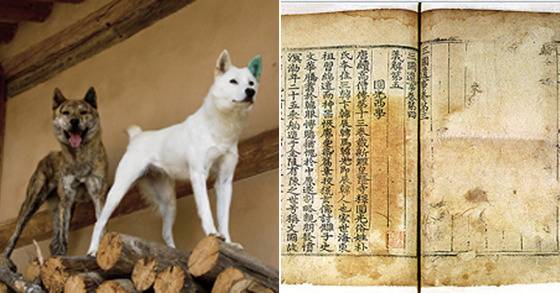 三國遺事卷第三
三國遺事卷第四
義解第五
圓光西學
唐續高僧傳第十三卷載新羅皇隆寺釋圓光俗姓朴
氏本住三韓卞韓辰韓馬韓光即辰韓人也家世海東
祖習綿遠而神器恢廓愛染篇章校獵玄儒討讎子史
文華騰翥於韓服博贍猶愧於中原遂割略親朋發憤
溟渤年二十五乘舶造于金陵有陳之世号稱文國故